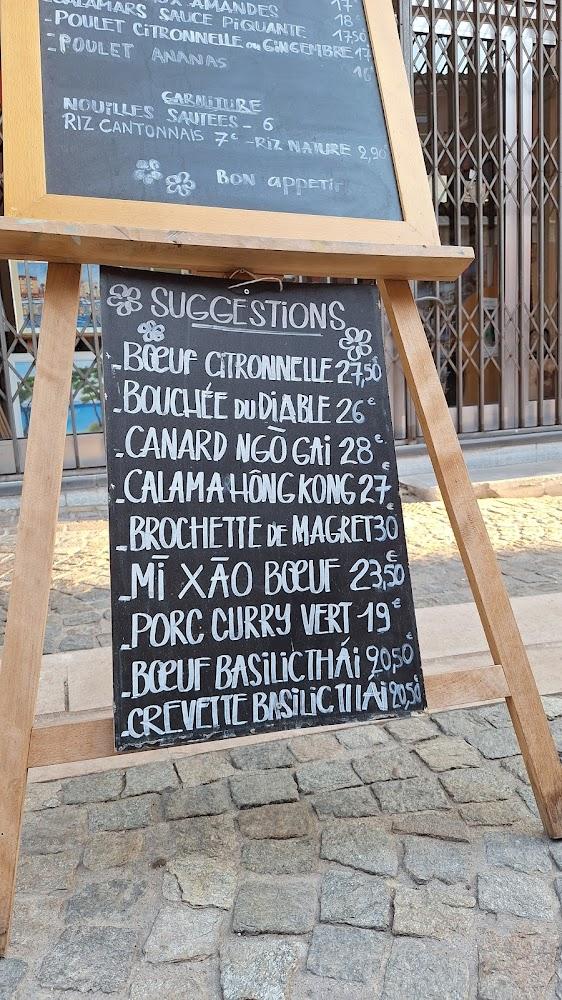 AMANDES 17
CALAMARS SAUCE PiQUANTE 18€
-POULET CiTRONNELLE ou GiNGEMBRE 17,50
-POULET ANANAS
GARNiTURE
NOUiLLES SAUTEES - 6
RiZ CANTONNAIS 7€ -RiZ NATURE 2,90
BON appetit
SUGGESTiONS
-BŒUF CiTRONNELLE 27,50€
-BOUCHÉE DU DiABLE 26€
-CANARD NGÒ GAi 28€
-CALAMA HÔNG KONG 27€
-BROCHETTE DE MAGRET 30€
-MĪ XĀO BŒUF 23,50€
-PORC CURRY VERT 19€
-BŒUF BASiLiC THÁi 20,50€
-CREVETTE BASiLiC THÁi 20,50€